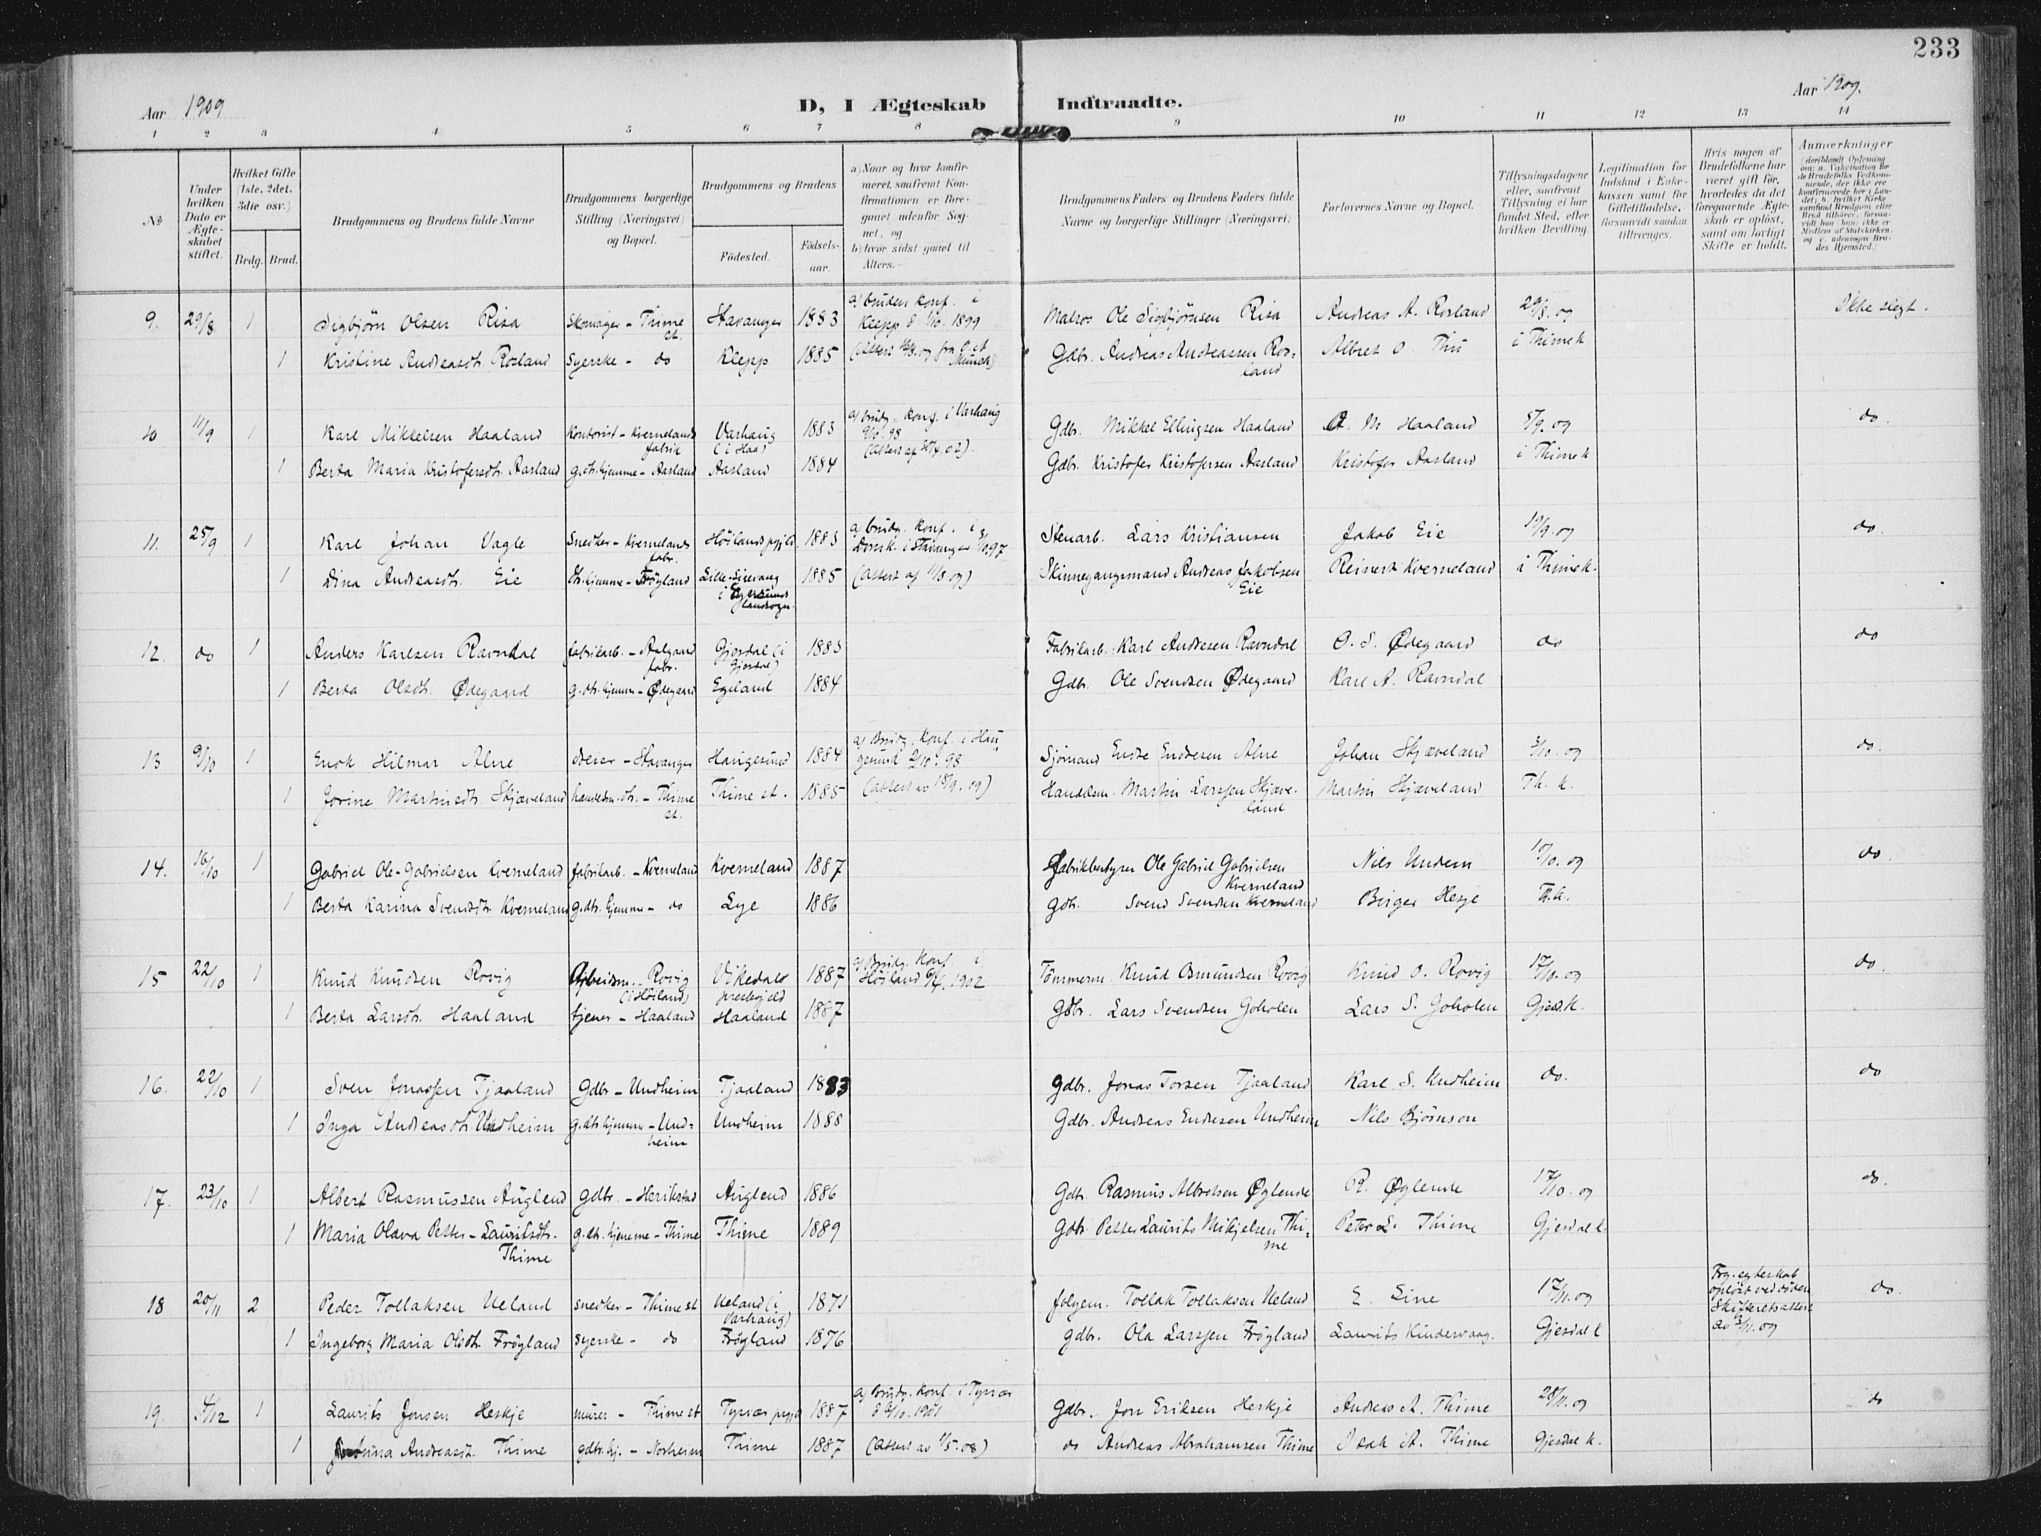 233
Aar 1909
D, I Ægteskab Indtraadte.
Aar 1909.
1 2 3 4 5 6 7 8 9 10 11 12 13 14
No
Under hvilken Dato er Ægteskabet stiftet.
Hvilket Gifte (1ste, 2det, 3die osv.)
Brdg. Brud.
Brudgommens og Brudens fulde Navne
Brudgommens borgerlige Stilling (Næringsvei) og Bopæl.
Brudgommens og Brudens
Födested.
Födselsaar.
a) Naar og hvor konfirmeret, saafremt Konfirmationen er foregaaet udenfor Sognet, og
b) hvor sidst gaaet til Alters.
Brudgommens Faders og Brudens Faders fulde Navne og borgerlige Stillinger (Næringsvei)
Forlovernes Navne og Bopæl.
Tillysningsdagene eller, saafremt Tillysning ei har fundet Sted, efter hvilken Bevilling
Legitimation for Indskud i Enkekassen samt for Giftetilladelse, forsaavidt saadan tiltrænges.
Hvis nogen af Brudefolkene har været gift för, hvorledes da det foregaaende Ægteskab er oplöst, samt om lovligt Skifte er holdt.
Anmærkninger
9. 29/8 1 Sigbjørn Olsen Risa Skomager - Thime st. Stavanger 1883 a) bruden konf. i Klepp d 1/10 1899 Matros Ole Sigbjørnsen Risa Andreas A. Rosland 29/8.09 Ikke slegt.
1 Kristine Andreasdtr Rosland Syerske - do Klepp 1885 Gdbr. Andreas Andreassen Rosland Albret O. Thu i Thime k
10 11/9 1 Karl Mikkelsen Haaland Kontorist - Kvernelands fabrik Varhaug (i Haa) 1883 a) brudg. konf. i Varhaug 2/10.98 Gdbr. Mikkel Ellingsen Haaland O. M Haaland 5/9.09 do.
1 Berta Maria Kristofersdtr. Aasland g.dtr. hjemme - Aasland Aasland 1884 Gdbr. Kristofer Kristofersen Aasland Kristofer Aasland i Thime k
11. 25/9 1 Karl Johan Vagle Snedker - Kvernelands fabr. Høilands pgjld 1883 a) brudg. konf. i Domk. i Stavanger 3/10 97 Stenarb. Lars Kristiansen Jakob Eie 19/9.09 do.
1 Dina Andreasdtr. Eie dtr. hjemme - Frøyland Lille-Sirevaag i Egersunds landsogn 1885 (Attest af 11/8.09) Skinnegangsmand Andreas Jakobsen Eie Reinert Kverneland i Thime k.
12. do 1 Anders Karlsen Ravndal fabrikarb. - Aalgaard fabr. Gjesdal (i Gjesdal) 1883 Fabrikarb. Karl Andersen Ravndal O. S. Ødegaard do do
1 Berta Olsdtr. Ødegaard g.dtr. hjemme - Ødegaard Egeland 1884 Gdbr. Ole Svendsen Ødegaard Karl A. Ravndal
13 9/10 1 Enok Hilmar Alne dreier - Stavanger Haugesund 1884 a) Brudg. konf. i Haugesund 2/10.98 Sjømand Endre Endresen Alne Johan Skjæveland 3/10.09 do.
1 Jorine Martinsdtr. Skjæveland handelsm.dtr. - Thime st. Thime st. 1885 (Attest av 18/9.09) Handelsm. Martin Larssen Skjæveland Martin Skjæveland Th. k.
14. 16/10 1 Gabriel Ole-Gabrielsen Kverneland fabrikarb. - Kverneland Kverneland 1887 Fabrikbestyrer Ole Gabriel Gabrielsen Kverneland Nils Undem 10/10.09 do.
1 Berta Karina Svendsdtr. Kverneland g.dtr. hjemme - do Lye 1886 gdb. Svend Svendsen Kverneland Birger Hesje Th.k.
15 22/10 1 Knud Knudsen Rovig Arbeidsm. Rovig (i Høiland) Vikedals prestegjeld 1887 a) Brudg. konf. i Høiland 1902 Tømmerm. Knud Osmundsen Rovig Knud O. Rovig 17/10.09 do.
1 Berta Larsdtr. Haaland tjener - Haaland Haaland 1887 Gdbr. Lars Svendsen Goholen Lars S. Goholen Gjesd.k.
16. 22/10 1 Sven Jonassen Tjaaland Gdbr - Undheim Tjaaland 1883 gdbr. Jonas Torsen Tjaaland Karl S. Undheim do. do
1 Inga Andreasdtr. Undheim g.dtr. hjemme - Undheim Undheim 1888 Gdbr. Andreas Endresen Undheim Nils Bjørnson
17. 23/10 1 Albert Rasmussen Auglend gdbr. - Herikstad Auglend 1886 Gdbr. Rasmus Albretsen Øglende R. Øglende 17/10.09 do.
1 Maria Olava Petter-Lauritsdtr. Thime g.dtr. hjemme - Thime Thime 1889 gdbr. Petter Laurits Mikjelsen Thime Peter L. Thime Gjesdal k
18 20/11 2 Peder Tollaksen Ueland snedker - Thime st Ueland (i Varhaug) 1871 folgem. Tollak Tollaksen Ueland E. Line 17/11.09 Frg. egteskab opløst ved døden Skifteretsattest av 13/11.09 do.
1 Ingeborg Maria Olsdtr. Frøyland syerske - do Frøyland 1876 gdbr. Ola Larssen Frøyland Laurits Kindervaag. Gjesdal k
19. 4/12 1 Laurits Jonsen Heskje murer - Thime st Tysvær pgjd 1887 a) Brudg. konf. i Tysvær d 6/10.1901 Gdbr. Jon Eriksen Heskje Andreas A. Thime 28/11.09 do
1 Andreasdt. Thime gdbr.hj. - Norheim Thime 1887 (Attest av 1/5.08) do Andreas Abrahamsen Thime Isak A. Thime Gjesdal k.